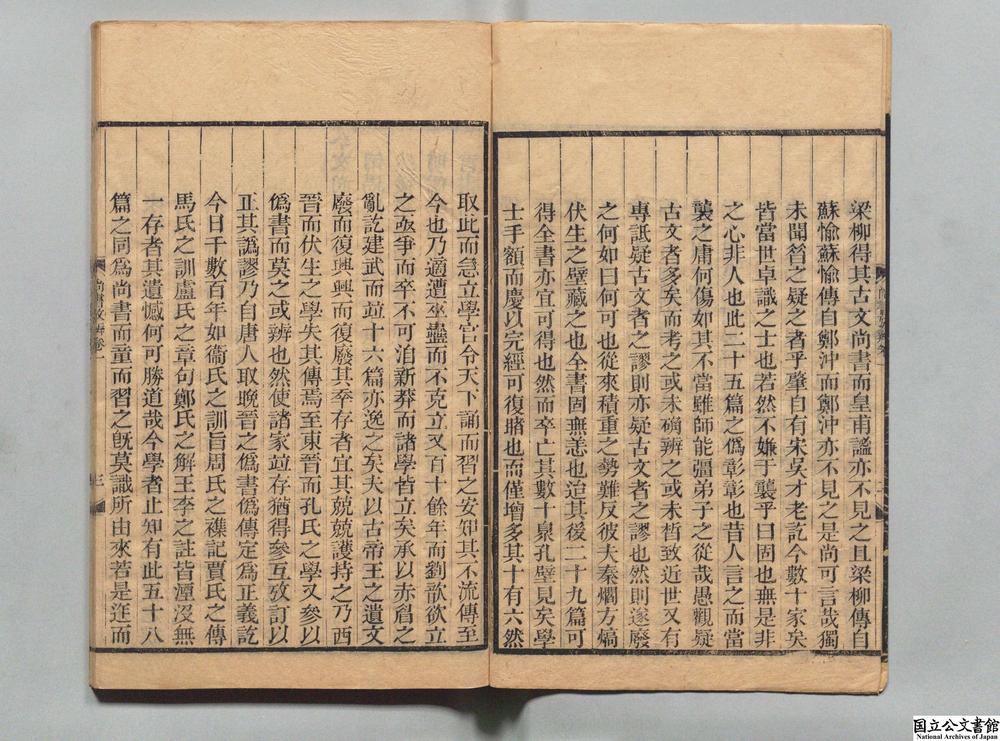 梁柳得其古文尚書而皇甫謐亦不見之且梁柳傳自
蘇愉蘇愉傳自鄭沖而鄭沖亦不見之是尚可言哉獨
未聞簪之疑之者乎肇自有宋吳才老訖今數十家矣
皆當世卓識之士也若然不嫌于襲乎曰固也無是非
之心非人也此二十五篇之僞彰彰也昔人言之而當
襲之庸何傷如其不當雖師能彊弟子之從哉愚觀疑
古文者多矣而考之或未碻辨之或未晳致近世又有
專詆疑古文者之謬則亦疑古文者之謬也然則遂廢
之何如曰何可也從來積重之勢難反彼夫秦爓方熇
伏生之壁藏之也全書固無恙也洎其後二十九篇可
得全書亦宜可得也然而卒亡其數十泉孔壁見矣學
士手額而慶以完經可復睹也而僅增多其十有六然
取此而急立學官令天下誦而習之安知其不流傳至
今也乃適遭巫蠱而不克立又百十餘年而劉歆欲立
之亟爭而卒不可洎新莽而諸學皆立矣承以赤眉之
亂訖建武而竝十六篇亦逸之矣夫以古帝王之遺文
廢而復興興而復廢其㚔存者宜其兢兢護持之乃西
晉而伏生之學失其傳焉至東晉而孔氏之學又參以
僞書而莫之或辨也然使諸家竝存猶得參互攷訂以
正其譌謬乃自唐人取晚晉之僞書僞傳定爲正義訖
今日千數百年如衞氏之訓旨周氏之襍記賈氏之傳
馬氏之訓盧氏之章句鄭氏之解王李之註皆湮沒無
一存者其遺憾何可勝道哉今學者止知有此五十八
篇之同爲尚書而童而習之旣莫識所由來若是迋而
尚書攷辨卷一
三
国立公文書館
National Archives of Japan